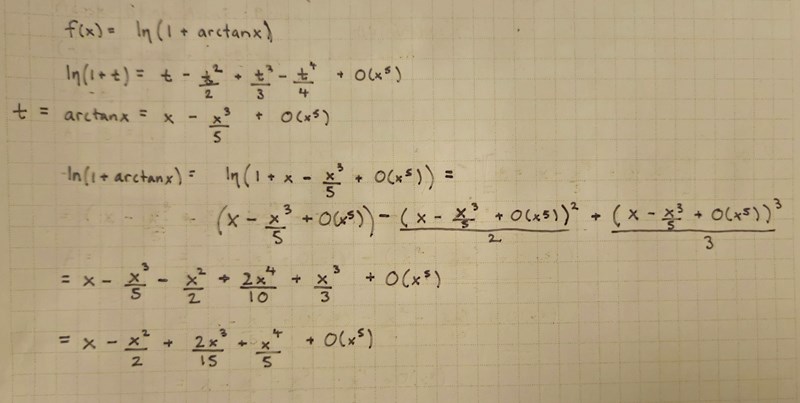 f(x) = ln(1 + arctanx)
ln(1+t) = t - t²/2 + t³/3 - t⁴/4 + O(x⁵)
t = arctanx = x - x³/5 + O(x⁵)
ln(1+arctanx) = ln(1 + x - x³/5 + O(x⁵)) =
(x - x³/5 + O(x⁵)) - (x - x³/5 + O(x⁵))²/2 + (x - x³/5 + O(x⁵))³/3
= x - x³/5 - x²/2 + 2x⁴/10 + x³/3 + O(x⁵)
= x - x²/2 + 2x³/15 + x⁴/5 + O(x⁵)